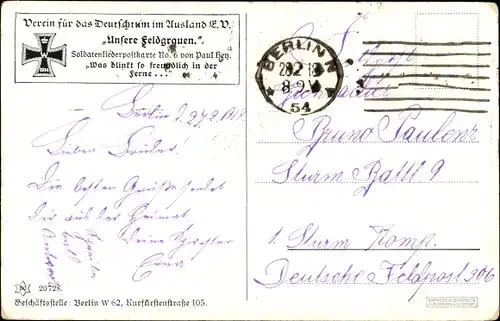 Verein für das Deutschtum im Ausland E.V.
„Unsere Feldgrauen.“
Soldatenliederpostkarte No. 6 von Paul Hey.
„Was blinkt so freundlich in der
Ferne...“
BERLIN N
28.2.18
8-9 V
54
Berlin d. 27.2.1918
Lieber Bruder!
Die besten Grüße sendet
dir aus der Heimat
deine Schwester
Erna
Bruno
Sturm Batll 9
1. Sturm Komp.
Deutsche Feldpost 306
20728.
Geschäftsstelle: Berlin W 62, Kurfürstenstraße 105.